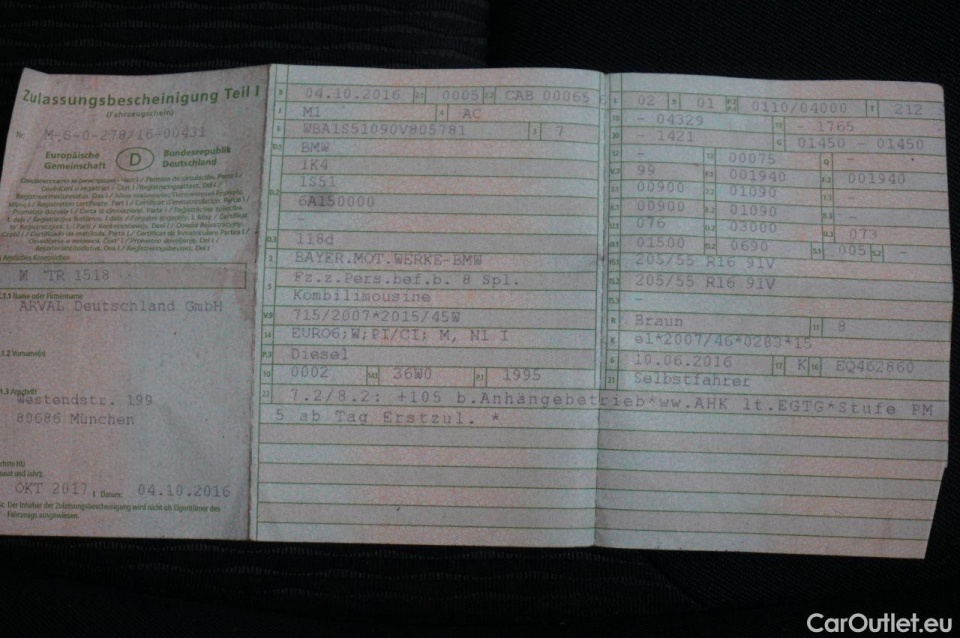 Zulassungsbescheinigung Teil I
(Fahrzeugschein)
Nr. M-S-0-278/16-00431
Europäische Gemeinschaft
D
Bundesrepublik Deutschland
Amtliches Kennzeichen
M TR 1518
C.1.1 Name oder Firmenname
ARVAL Deutschland GmbH
C.1.2 Vorname(n)
C.1.3 Anschrift
Westendstr. 199
80686 München
Nächste HU
Monat und Jahr
OKT 2017 I Datum: 04.10.2016
Der Inhaber der Zulassungsbescheinigung wird nicht als Eigentümer des
Fahrzeugs ausgewiesen.
B 04.10.2016 2.1 0005 2.2 CAB 00065 6
J M1 4 AC
E WBA1S51090V805781 3 7
D.1 BMW
D.2 1K4
1S51
6A150000
-
D.3 118d
2 BAYER.MOT.WERKE-BMW
5 Fz.z.Pers.bef.b. 8 Spl.
Kombilimousine
V.9 715/2007*2015/45W
14 EURO6;W;PI/CI; M, N1 I
P.3 Diesel
10 0002 14.1 36W0 P.1 1995
22 7.2/8.2: +105 b.Anhängebetrieb*ww.AHK lt.EGTG*Stufe PM
5 ab Tag Erstzul. *
L 02 9 01 P.2 P.4 0110/04000 T 212
18 - 04329 19 - 1765
20 - 1421 G 01450 - 01450
12 - 13 00075 Q -
V.7 99 F.1 001940 F.2 001940
7.1 00900 7.2 01090 7.3 -
8.1 00900 8.2 01090 8.3 -
U.1 076 U.2 03000 U.3 073
O.1 01500 O.2 0690 S.1 005 S.2 -
15.1 205/55 R16 91V
15.2 205/55 R16 91V
15.3 -
R Braun 11 8
K e1*2007/46*0283*15
6 10.06.2016 17 K 16 EQ462860
21 Selbstfahrer
CarOutlet.eu